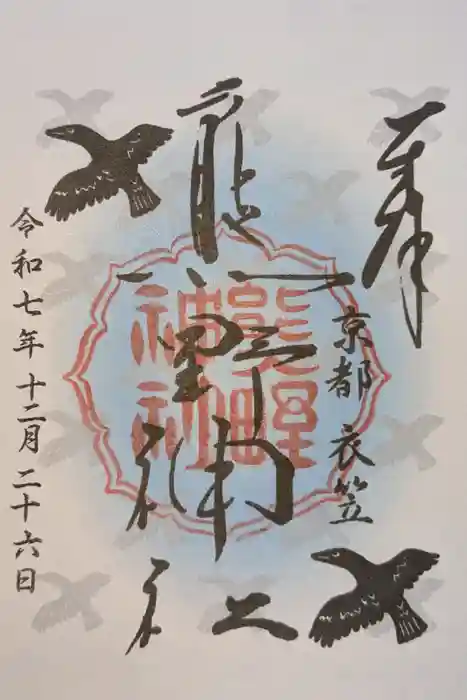 奉拝
京都 衣笠
熊野神社
熊野
神社
令和七年 十二月 二十六日